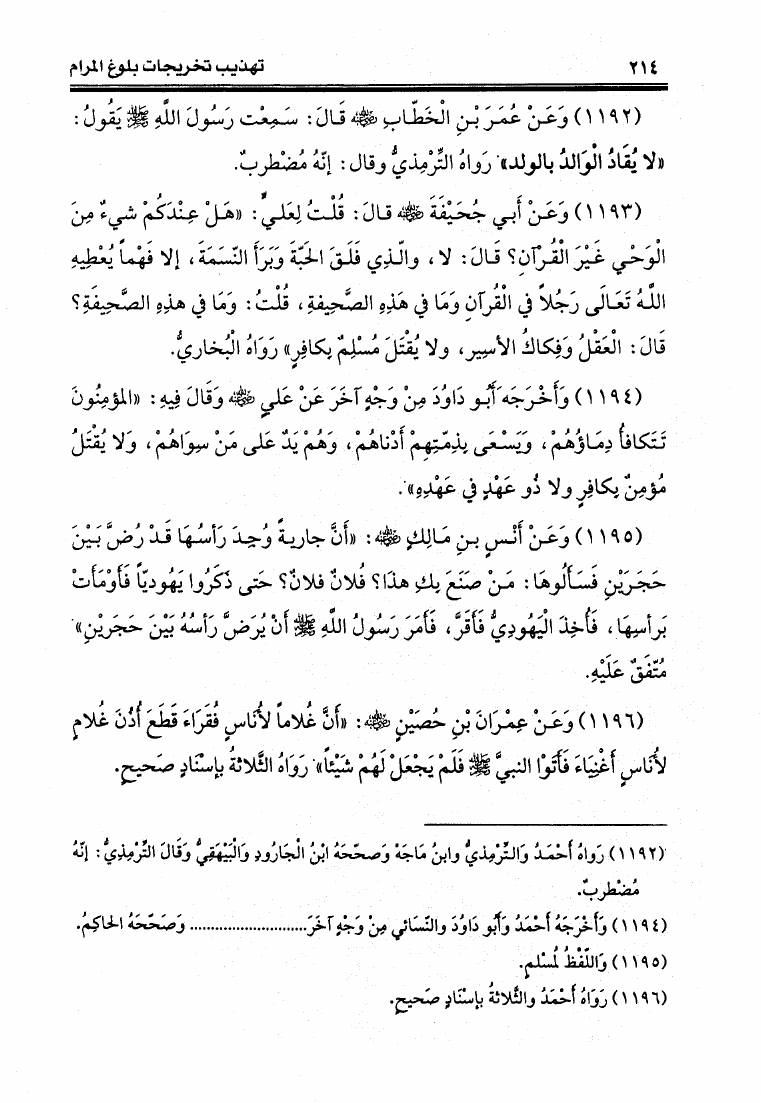 ٢١٤
تهذيب تخريجات بلوغ المرام
(١١٩٢) وَعَنْ عُمَرَ بْنِ الْخَطَّابِ ﷺ قَالَ: سَمِعْت رَسُولَ اللَّهِ ﷺ يَقُولُ:
«لا يُقَادُ الْوَالدُ بالولد» رَواهُ التِّرْمِذيُّ وقال: إنَّهُ مُضْطربٌ.
(١١٩٣) وَعَنْ أَبي جُحَيْفَةَ ﷺ قال: قُلْتُ لِعَليٍّ: «هَلْ عِنْدَكُمْ شيءٌ مِنَ
الْوَحْي غَيْرَ الْقُرآنِ؟ قَالَ: لا، والّذِي فَلَقَ الحَبَّةَ وَبَرَأَ النّسَمَةَ، إلا فَهْماً يُعْطِيهِ
اللَّهُ تَعَالَى رَجُلاً في الْقُرآنِ وَمَا في هَذِهِ الصَّحِيفةِ، قُلْتُ: وَمَا في هذِهِ الصَّحِيفَةِ؟
قَالَ: الْعَقْلُ وَفِكاكُ الأسيرِ، ولا يُقْتَلَ مُسْلِمٌ بِكافِرٍ» رَوَاهُ الْبُخاريُّ.
(١١٩٤) وَأَخْرَجَهَ أَبُو دَاوُدَ مِنْ وَجْهٍ آخَرَ عَنْ عَليٍ ﷺ وَقَالَ فِيهِ: «المؤمِنُونَ
تَتَكافأُ دِمَاؤُهُمْ، وَيَسْعَى بِذِمّتِهِمْ أَدْنَاهُمْ، وَهُمْ يَدٌ عَلى مَنْ سِوَاهُمْ، وَلا يُقْتَلُ
مُؤمِنٌ بِكافِرٍ ولا ذُو عَهْدٍ في عَهْدِهِ».
(١١٩٥) وَعَنْ أَنَسِ بنِ مَالِكٍ ﷺ: «أَنَّ جاريةً وُجِدَ رَأسُهَا قَدْ رُضَّ بَيْنَ
حَجَرَيْنِ فَسَأَلُوهَا: مَنْ صَنَعَ بِكِ هذَا؟ فُلانٌ فلانٌ؟ حَتى ذَكَرُوا يَهُوديّاً فَأَوْمَأَتْ
بَرأسِهَا، فَأُخِذَ الْيَهُودِيُّ فَأَقَرَّ، فَأَمَرَ رَسُولُ اللَّهِ ﷺ أَنْ يُرَضَّ رَأسُهُ بَيْنَ حَجَريْنِ»
مُتّفَقٌ عَلَيْهِ.
(١١٩٦) وَعَنْ عِمْرَانَ بْنِ حُصَيْنٍ ﷺ: «أَنَّ غُلاماً لأُناسٍ فُقَرَاءَ قَطَعَ أُذُنَ غُلامٍ
لأُنَاسٍ أَغْنِيَاءَ فَأَتَوْا النبيَّ ﷺ فَلَمْ يَجْعَلْ لَهُمْ شَيْئاً» رَوَاهُ الثَّلاثةُ بإسْنَادٍ صَحيحٍ.
(١١٩٢) رَواهُ أَحْمَدُ وَالتِّرْمِذيُّ وابنُ مَاجَهْ وَصحّحَهُ ابْنُ الْجَارُودِ وَالْبَيْهَقِيُّ وَقَالَ التِّرْمِذِيُّ: إنَّهُ
مُضْطربٌ.
(١١٩٤) وَأَخْرَجَهُ أَحْمَدُ وَأَبُو دَاوُدَ والنّسَائي مِنْ وَجْهٍ آخَرَ............................ وَصَحّحَهُ الحَاكِمُ.
(١١٩٥) وَاللّفْظُ لمُسْلمٍ.
(١١٩٦) رَوَاهُ أَحْمَدُ والثّلاثةُ بإسْنَادٍ صَحيحٍ.